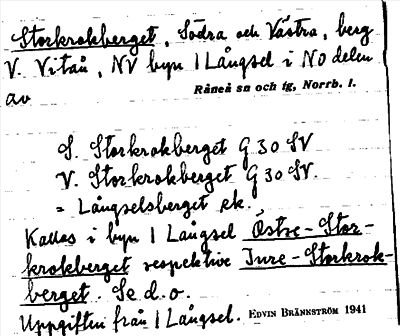 Storkrokberget, Södra och Västra, berg
V. Vitån, NV byn Långsel i NO delen
av
Råneå sn och tg, Norrb. l.
S. Storkrokberget G 30 SV
V. Storkrokberget G 30 SV.
= Långselsberget ek.
Kallas i byn Långsel Östre-Stor-
krokberget respektive Jure-Storkrok-
berget. Se d.o.
Uppgiften från Långsel. EDVIN BRÄNNSTRÖM 1941